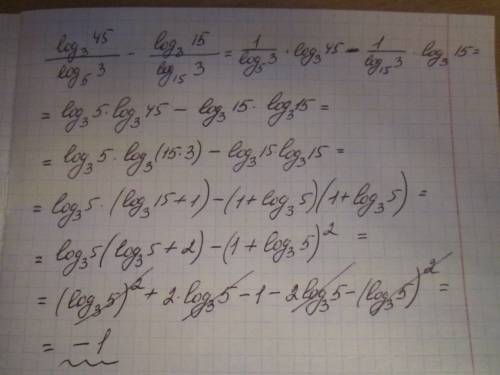 log₃45/log₅3 - log₃15/log₁₅3 = 1/log₅3 · log₃45 - 1/log₁₅3 · log₃15 =
= log₃5 · log₃45 - log₃15 · log₃15 =
= log₃5 · log₃(15·3) - log₃15 log₃15 =
= log₃5 · (log₃15+1) - (1+log₃5)(1+log₃5) =
= log₃5(log₃5+2) - (1+log₃5)² =
= (log₃5)² + 2·log₃5 - 1 - 2log₃5 - (log₃5)² =
= -1